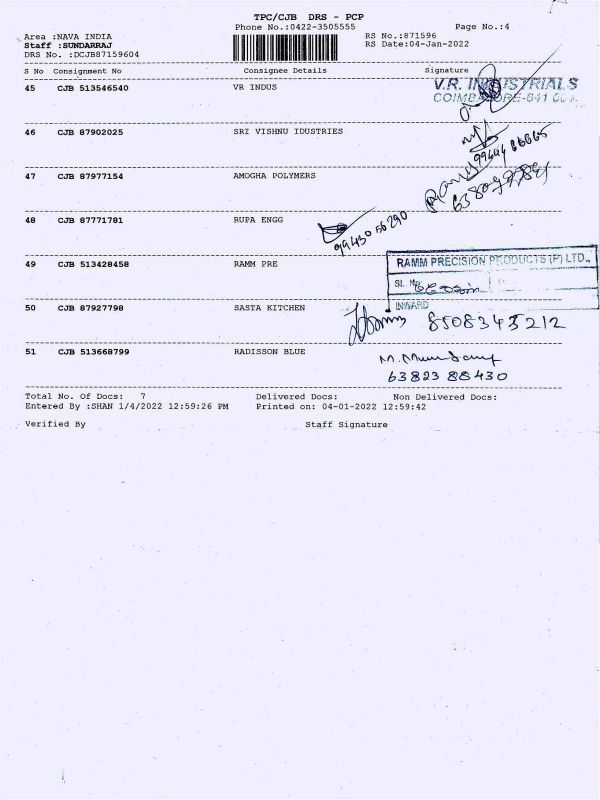 TPC/CJB DRS - PCP
Phone No.:0422-3505555 Page No.:4
Area :NAVA INDIA RS No.:871596
Staff :SUNDARRAJ RS Date:04-Jan-2022
DRS No. :DCJB87159604
S No Consignment No Consignee Details Signature
45 CJB 513546540 VR INDUS
V.R. INDUSTRIALS
COIMBATORE-641
46 CJB 87902025 SRI VISHNU IDUSTRIES
47 CJB 87977154 AMOGHA POLYMERS
48 CJB 87771781 RUPA ENGG
9943056290
49 CJB 513428458 RAMM PRE
RAMM PRECISION PRODUCTS (P) LTD.,
Sl. No.
INWARD
50 CJB 87927798 SASTA KITCHEN
8508345212
51 CJB 513668799 RADISSON BLUE
63823 88430
Total No. Of Docs: 7 Delivered Docs: Non Delivered Docs:
Entered By :SHAN 1/4/2022 12:59:26 PM Printed on: 04-01-2022 12:59:42
Verified By Staff Signature